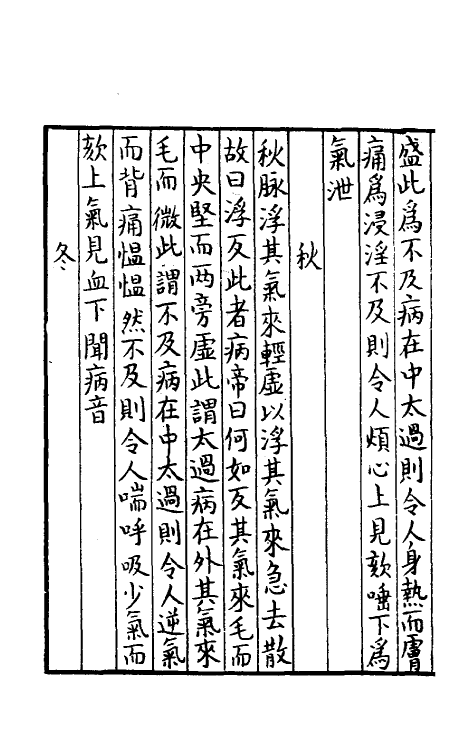 盛此爲不及病在中太過則令人身熱而膚
痛爲浸淫不及則令人煩心上見欬唾下爲
氣泄
秋
秋脉浮其氣來輕虛以浮其氣來急去散
故曰浮反此者病帝曰何如反其氣來毛而
中央堅而两旁虛此謂太過病在外其氣來
毛而微此謂不及病在中太過則令人逆氣
而背痛慍慍然不及則令人喘呼吸少氣而
欬上氣見血下聞病音
冬